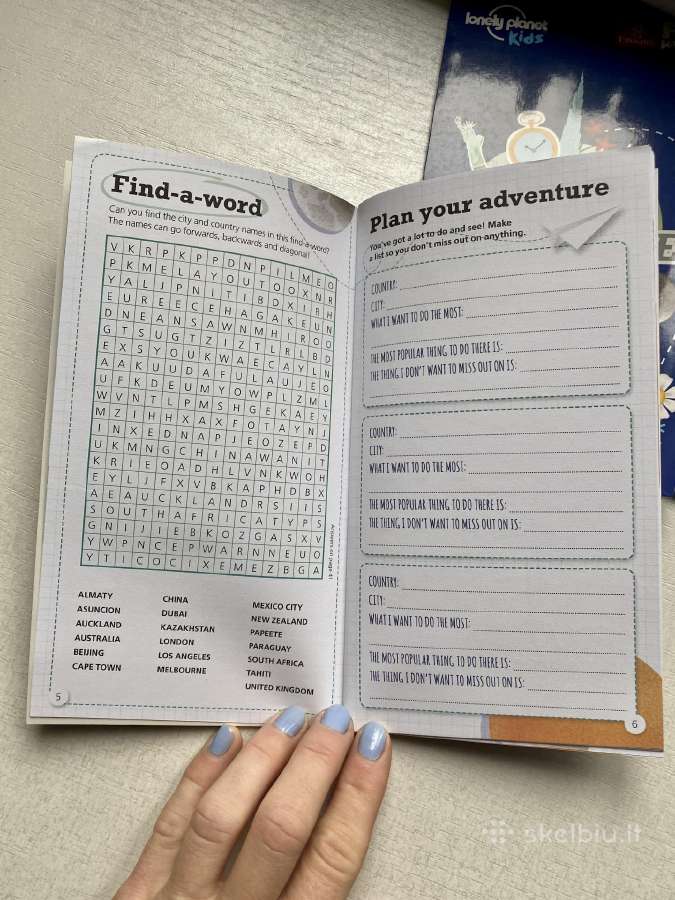 lonely planet
Kids
Find-a-word
Can you find the city and country names in this find-a-word?
The names can go forwards, backwards and diagonal!
V K R P K P P D N P I L M E O
P K M E L A Y O U T O O X N R
Y A L I P N I T I B D X I R H
E U R E E C E H A G A K E U N
D N E A N S A W N M H I R O O
G T S U G T Z I Z T L R L B D
E X S Y O U K W A E C A Y L N
A A K U U D A F U L A U J E O
U F K D E U M Y O W P L Z M L
W V N T L P M S H G E K A E Y
M Z I H H X A X F O T A Y N J
I N X E D N A P J E O Z E P D
U K M N G C H I N A W A N I T
K R I E O A D H L V N K W O H
E Y L J F X V B K A P H D B X
A E A U C K L A N D R S I I S
S O U T H A F R I C A T Y P S
G N I J I E B K O Z G A S X V
Y W P N C E P W A R N N E U O
Y T I C O C I X E M E Z B G A
ALMATY
ASUNCION
AUCKLAND
AUSTRALIA
BEIJING
CAPE TOWN
CHINA
DUBAI
KAZAKHSTAN
LONDON
LOS ANGELES
MELBOURNE
MEXICO CITY
NEW ZEALAND
PAPEETE
PARAGUAY
SOUTH AFRICA
TAHITI
UNITED KINGDOM
5
Plan your adventure
You've got a lot to do and see! Make
a list so you don't miss out on anything.
COUNTRY:
CITY:
WHAT I WANT TO DO THE MOST:
THE MOST POPULAR THING TO DO THERE IS:
THE THING I DON'T WANT TO MISS OUT ON IS:
COUNTRY:
CITY:
WHAT I WANT TO DO THE MOST:
THE MOST POPULAR THING TO DO THERE IS:
THE THING I DON'T WANT TO MISS OUT ON IS:
COUNTRY:
CITY:
WHAT I WANT TO DO THE MOST:
THE MOST POPULAR THING TO DO THERE IS:
THE THING I DON'T WANT TO MISS OUT ON IS:
6
skelbiu.lt